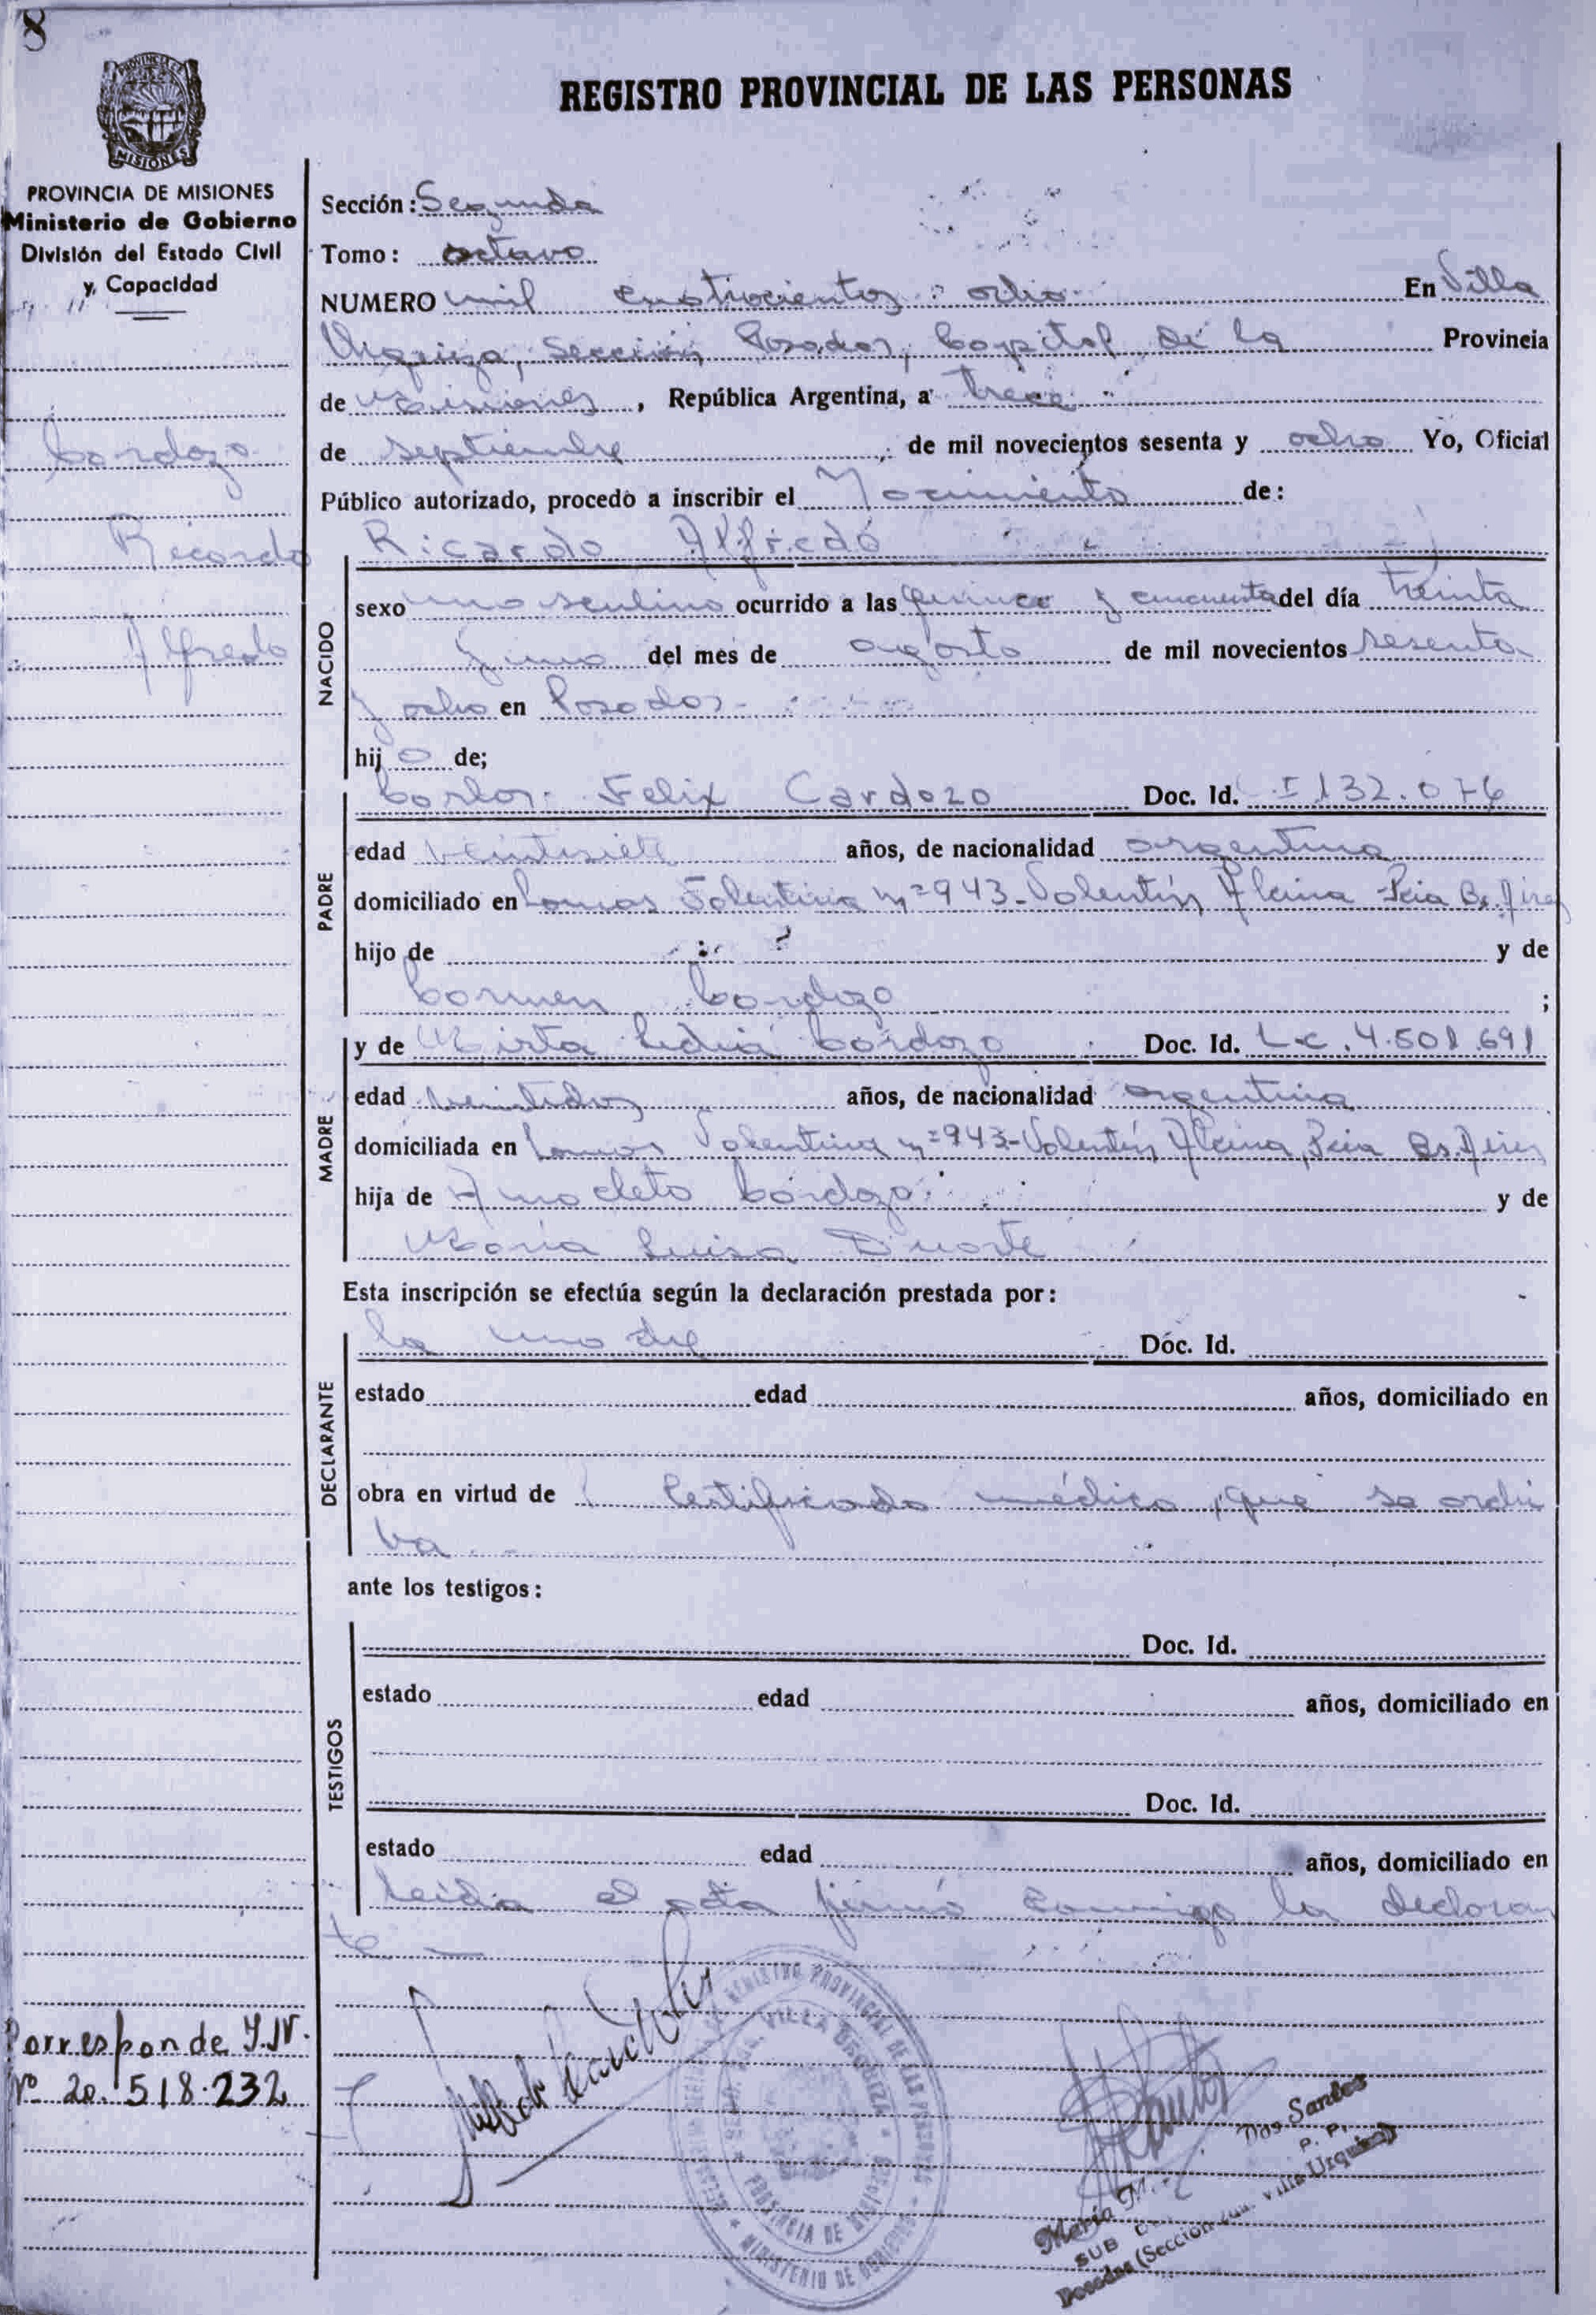 8
REGISTRO PROVINCIAL DE LAS PERSONAS
PROVINCIA DE MISIONES
Ministerio de Gobierno
División del Estado Civil
y Capacidad
Cardozo
Ricardo
Alfredo
Corresponde I.N.
Nº 20.518.232
Sección: Segunda
Tomo: octavo
NUMERO mil cuatrocientos ocho En Villa
Urquiza, Sección Posadas, Capital de la Provincia
de Misiones, República Argentina, a trece
de septiembre de mil novecientos sesenta y ocho Yo, Oficial
Público autorizado, procedo a inscribir el Nacimiento de:
Ricardo Alfredo
NACIDO
sexo masculino ocurrido a las quince y cincuenta del día treinta
y uno del mes de agosto de mil novecientos sesenta
y ocho en Posadas
hijo de;
PADRE
Carlos Felix Cardozo Doc. Id. 132.076
edad veintisiete años, de nacionalidad argentina
domiciliado en Lomas Valentina nº 943 - Valentín Alsina Pcia Bs. Aires
hijo de ? y de
Carmen Cardozo ;
MADRE
y de Mirta Lidia Cardozo Doc. Id. L.C. 4.501.691
edad veintidos años, de nacionalidad argentina
domiciliada en Lomas Valentina nº 943 - Valentín Alsina, Pcia Bs. Aires
hija de Anacleto Cardozo y de
María Luisa Duarte
Esta inscripción se efectúa según la declaración prestada por:
DECLARANTE
la madre Doc. Id.
estado edad años, domiciliado en
obra en virtud de Certificado médico, que se archi
va
ante los testigos:
TESTIGOS
Doc. Id.
estado edad años, domiciliado en
Doc. Id.
estado edad años, domiciliado en
Leida el acta firmó conmigo la declaran
te
REGISTRO PROVINCIAL DE LAS PERSONAS
VILLA URQUIZA
PROVINCIA DE MISIONES
MINISTERIO DE GOBIERNO
María M. Dos Santos
SUB
Posadas (Sección 2da. Villa Urquiza)